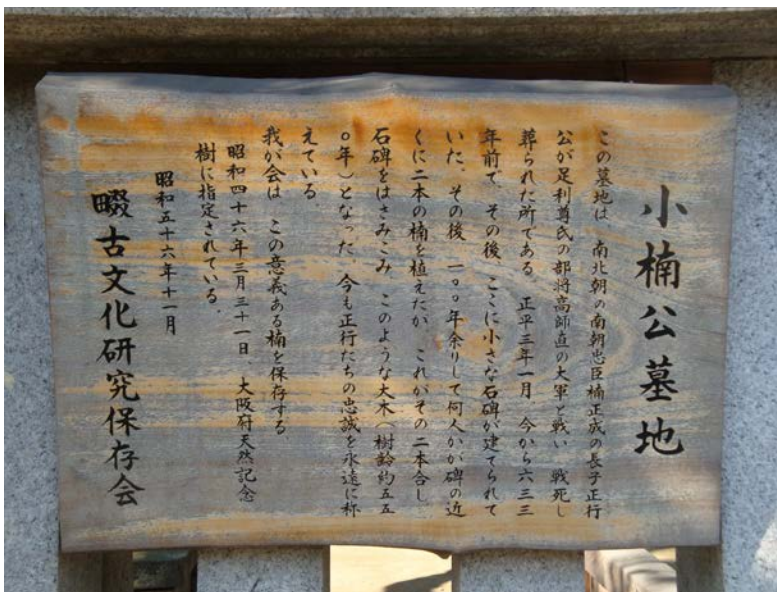 小楠公墓地
この墓地は 南北朝の南朝忠臣楠正成の長子正行
公が足利尊氏の部将高師直の大軍と戦い 戦死し
葬られた所である。正平三年一月、今から六三三
年前で、その後、ここに小さな石碑が建てられて
いた。その後 一〇〇年余りして何人かが碑の近
くに二本の楠を植えたが これがその二本合し、
石碑をはさみこみ このような大木(樹齢約五五
〇年)となった 今も正行たちの忠誠を永遠に称
えている。
我が会は この意義ある楠を保存する
昭和四十六年三月三十一日 大阪府天然記念
樹に指定されている。
昭和五十六年十一月
畷古文化研究保存会